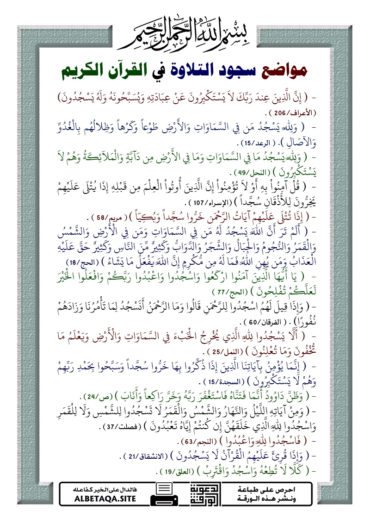 بِسْمِ اللَّهِ الرَّحْمَنِ الرَّحِيمِ
مواضع سجود التلاوة في القرآن الكريم
- ( إِنَّ الَّذِينَ عِندَ رَبِّكَ لاَ يَسْتَكْبِرُونَ عَنْ عِبَادَتِهِ وَيُسَبِّحُونَهُ وَلَهُ يَسْجُدُونَ)
(الأعراف/206 ) .
- ( وَلِلّهِ يَسْجُدُ مَن فِي السَّمَاوَاتِ وَالأَرْضِ طَوْعاً وَكَرْهاً وَظِلالُهُم بِالْغُدُوِّ
وَالآصَالِ ). ( الرعد/15) .
- ( وَلِلّهِ يَسْجُدُ مَا فِي السَّمَاوَاتِ وَمَا فِي الأَرْضِ مِن دَآبَّةٍ وَالْمَلآئِكَةُ وَهُمْ لاَ
يَسْتَكْبِرُونَ ) (النحل/49) .
- ( قُلْ آمِنُواْ بِهِ أَوْ لاَ تُؤْمِنُواْ إِنَّ الَّذِينَ أُوتُواْ الْعِلْمَ مِن قَبْلِهِ إِذَا يُتْلَى عَلَيْهِمْ
يَخِرُّونَ لِلأَذْقَانِ سُجَّداً ) (الإسراء/107 ) .
- ( إِذَا تُتْلَى عَلَيْهِمْ آيَاتُ الرَّحْمَن خَرُّوا سُجَّداً وَبُكِيّاً ) ( مريم/58 ) .
- ( أَلَمْ تَرَ أَنَّ اللَّهَ يَسْجُدُ لَهُ مَن فِي السَّمَاوَاتِ وَمَن فِي الْأَرْضِ وَالشَّمْسُ
وَالْقَمَرُ وَالنُّجُومُ وَالْجِبَالُ وَالشَّجَرُ وَالدَّوَابُّ وَكَثِيرٌ مِّنَ النَّاسِ وَكَثِيرٌ حَقَّ عَلَيْهِ
الْعَذَابُ وَمَن يُهِنِ اللَّهُ فَمَا لَهُ مِن مُّكْرِمٍ إِنَّ اللَّهَ يَفْعَلُ مَا يَشَاءُ ) (الحج/18)
- ( يَا أَيُّهَا الَّذِينَ آمَنُوا ارْكَعُوا وَاسْجُدُوا وَاعْبُدُوا رَبَّكُمْ وَافْعَلُوا الْخَيْرَ
لَعَلَّكُمْ تُفْلِحُونَ ) (الحج/77 )
- ( وَإِذَا قِيلَ لَهُمُ اسْجُدُوا لِلرَّحْمَنِ قَالُوا وَمَا الرَّحْمَنُ أَنَسْجُدُ لِمَا تَأْمُرُنَا وَزَادَهُمْ
نُفُوراً) . ( الفرقان/60 ) .
- ( أَلَّا يَسْجُدُوا لِلَّهِ الَّذِي يُخْرِجُ الْخَبْءَ فِي السَّمَاوَاتِ وَالْأَرْضِ وَيَعْلَمُ مَا
تُخْفُونَ وَمَا تُعْلِنُونَ ) (النمل/25 ) .
- ( إِنَّمَا يُؤْمِنُ بِآيَاتِنَا الَّذِينَ إِذَا ذُكِّرُوا بِهَا خَرُّوا سُجَّداً وَسَبَّحُوا بِحَمْدِ رَبِّهِمْ
وَهُمْ لَا يَسْتَكْبِرُونَ ) (السجدة/15 ) .
- ( وَظَنَّ دَاوُودُ أَنَّمَا فَتَنَّاهُ فَاسْتَغْفَرَ رَبَّهُ وَخَرَّ رَاكِعاً وَأَنَابَ ) (ص/24) .
- ( وَمِنْ آيَاتِهِ اللَّيْلُ وَالنَّهَارُ وَالشَّمْسُ وَالْقَمَرُ لَا تَسْجُدُوا لِلشَّمْسِ وَلَا لِلْقَمَرِ
وَاسْجُدُوا لِلَّهِ الَّذِي خَلَقَهُنَّ إِن كُنتُمْ إِيَّاهُ تَعْبُدُونَ ) ( فصلت/37 ) .
- ( فَاسْجُدُوا لِلَّهِ وَاعْبُدُوا ) (النجم/63) .
- ( وَإِذَا قُرِئَ عَلَيْهِمُ الْقُرْآنُ لَا يَسْجُدُونَ ) ( الانشقاق/21 ) .
- ( كَلَّا لَا تُطِعْهُ وَاسْجُدْ وَاقْتَرِبْ ) ( العلق/19 ) .
احرص على طباعة
ونشر هـذه الورقـة
دعوية
الورقة
فالدال على الخير كفاعله
ALBETAQA.SITE